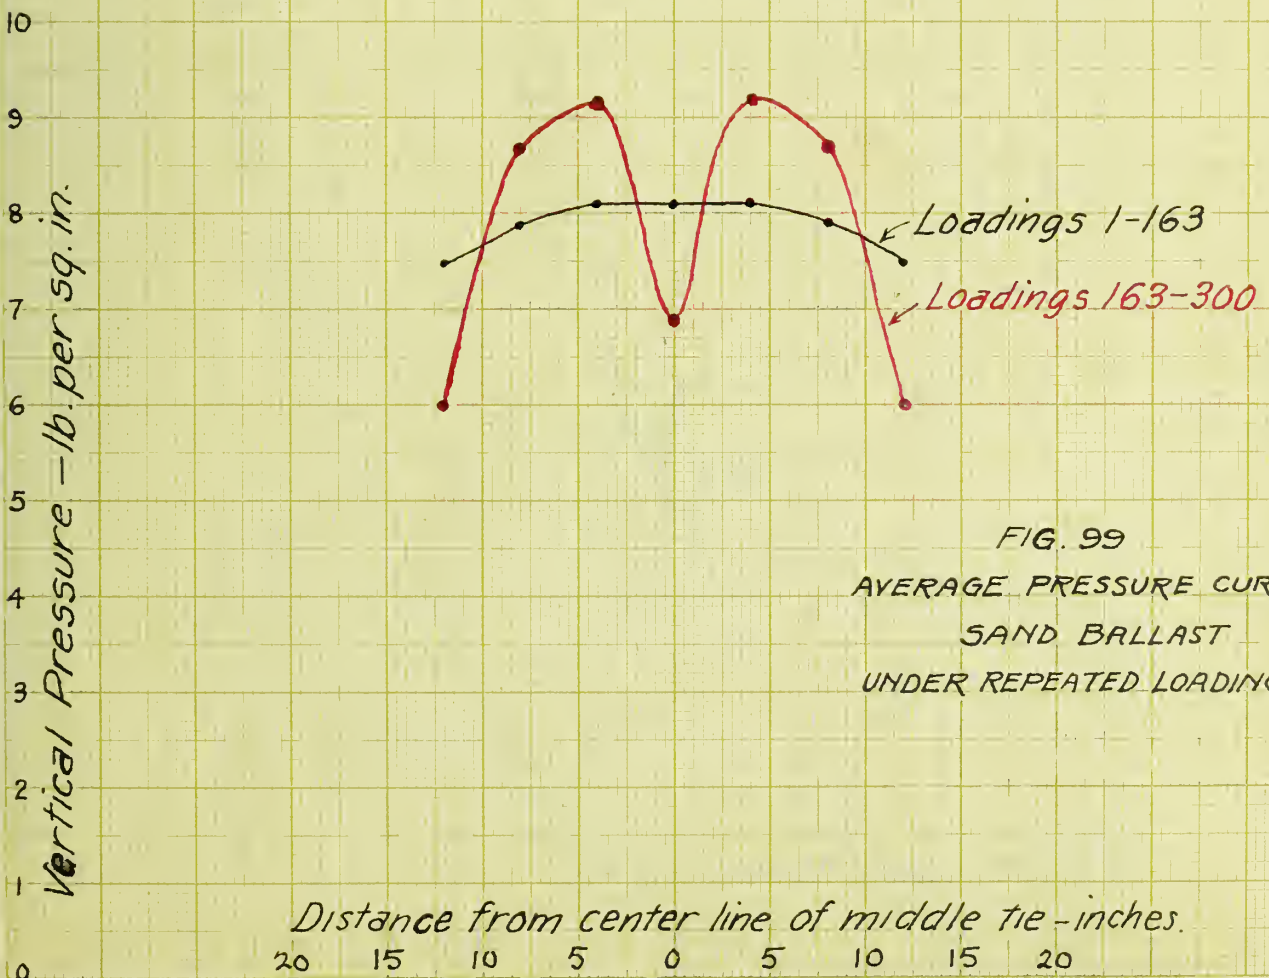 10
9
8
7
6
5
4
3
2
1
0
Vertical Pressure – lb. per sq. in.
Loadings 1-163
Loadings 163-300
FIG. 99
AVERAGE PRESSURE CUR
SAND BALLAST
UNDER REPEATED LOADING
Distance from center line of middle tie - inches.
20 15 10 5 0 5 10 15 20